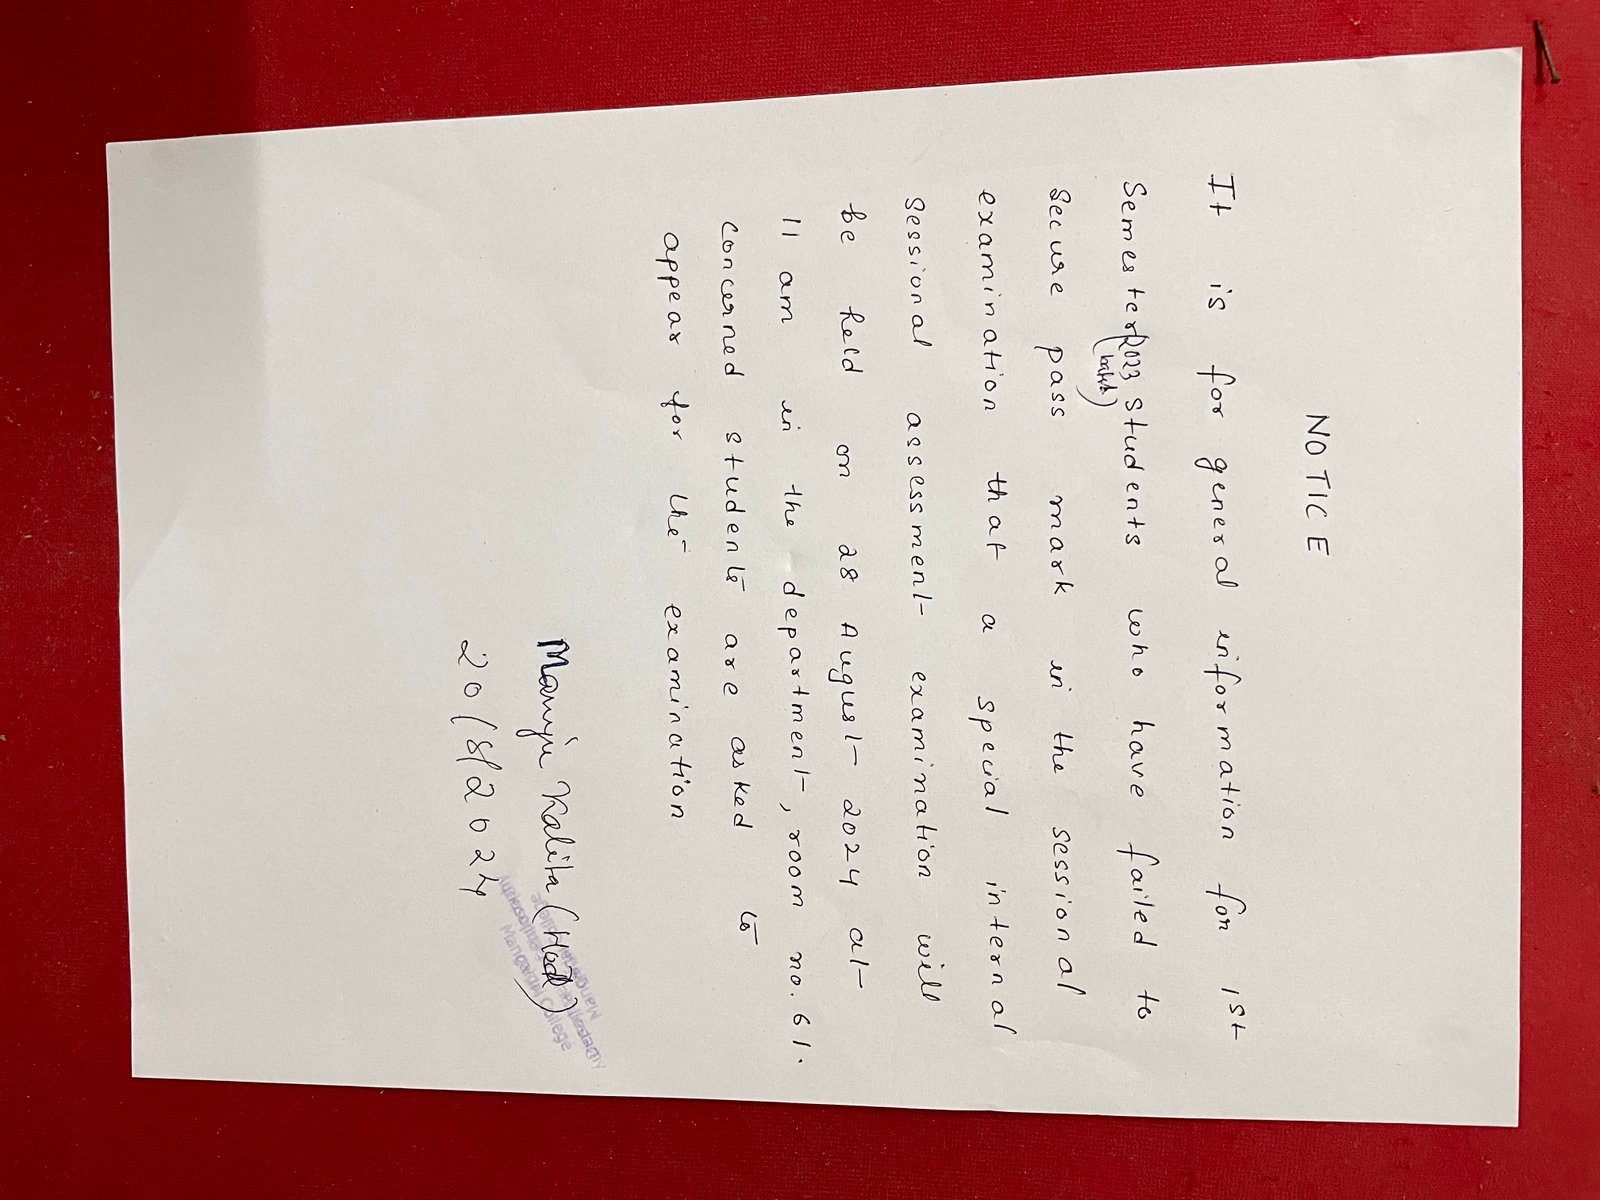 NOTICE
It is for general information for 1st
Semester 2023 students who have failed to
(batch)
secure pass mark in the sessional
examination that a special internal
sessional assessment examination will
be held on 28 August 2024 at
11 am in the department, room no. 61.
Concerned students are asked to
appear for the examination
Manju Kalita (HoD)
20/8/2024
Mangaldai College